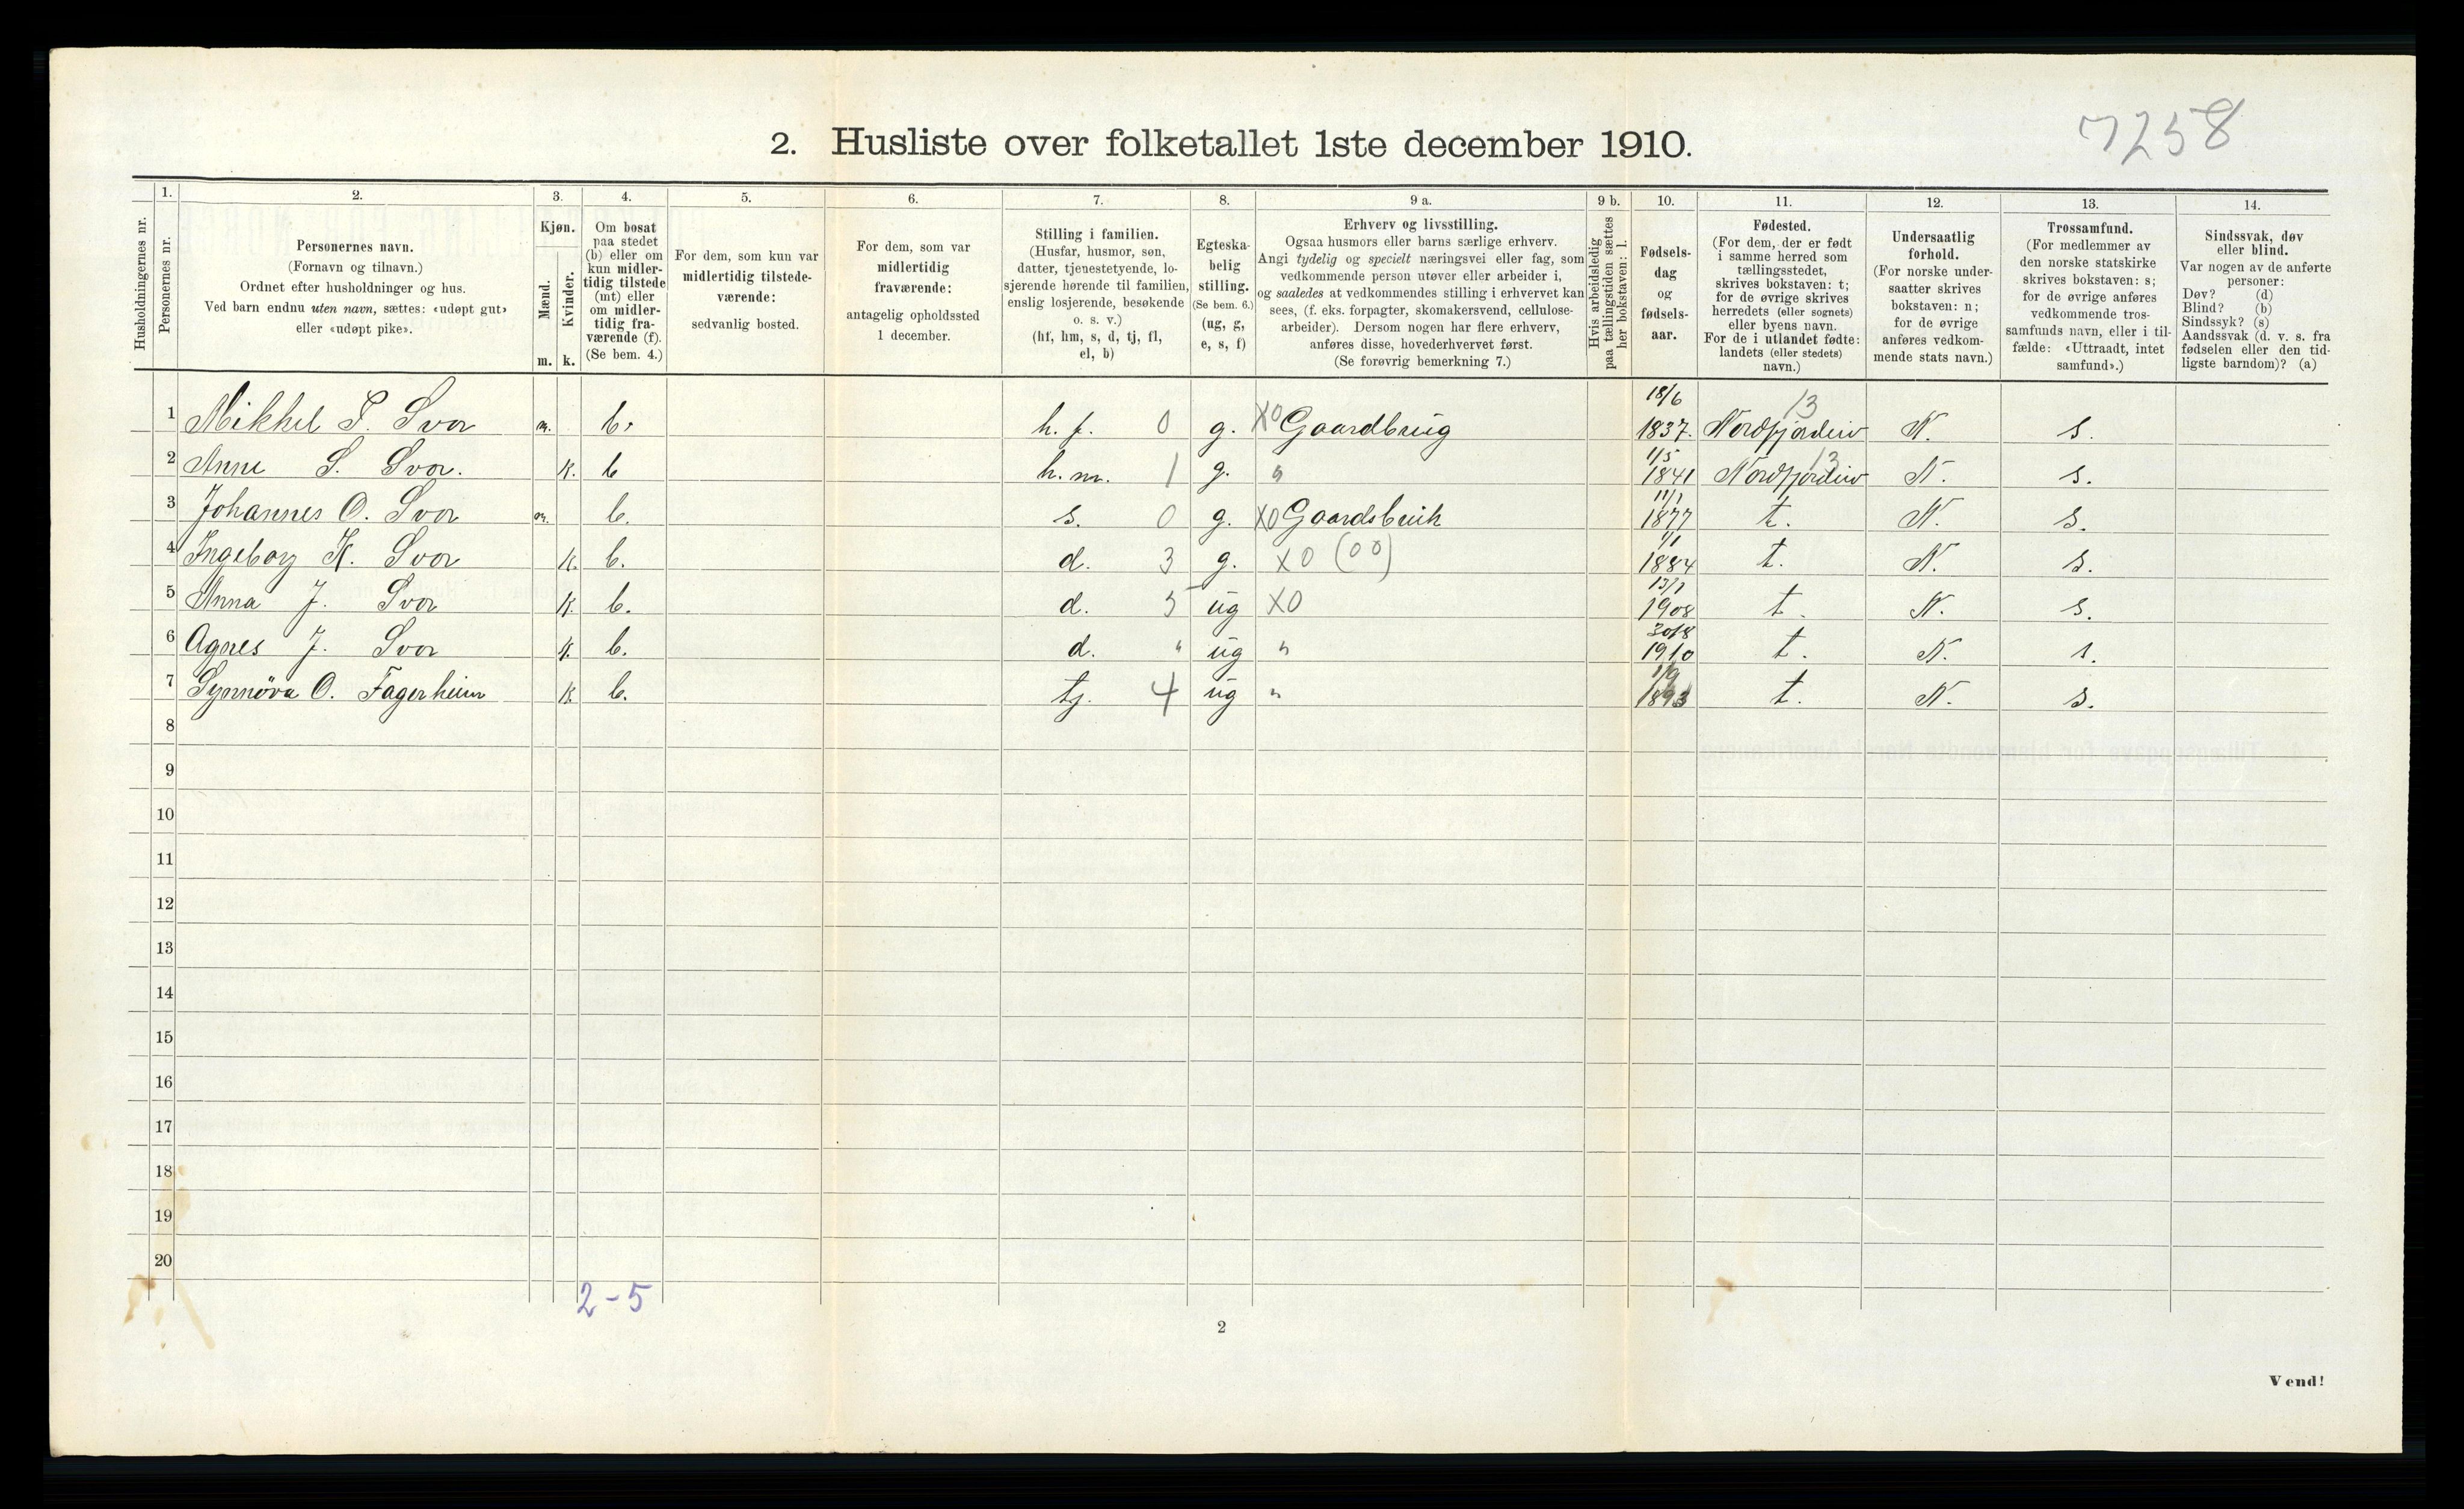 7258
2. Husliste over folketallet 1ste december 1910.
Husholdningernes nr.
1.
Personernes nr.
2.
Personernes navn.
(Fornavn og tilnavn.)
Ordnet efter husholdninger og hus.
Ved barn endnu uten navn, sættes: «udøpt gut»
eller «udøpt pike».
3.
Kjøn.
Mænd.
Kvinder.
m. k.
4.
Om bosat
paa stedet
(b) eller om
kun midler-
tidig tilstede
(mt) eller
om midler-
tidig fra-
værende (f).
(Se bem. 4.)
5.
For dem, som kun var
midlertidig tilstede-
værende:
sedvanlig bosted.
6.
For dem, som var
midlertidig
fraværende:
antagelig opholdssted
1 december.
7.
Stilling i familien.
(Husfar, husmor, søn,
datter, tjenestetyende, lo-
sjerende hørende til familien,
enslig losjerende, besøkende
o. s. v.)
(hf, hm, s, d, tj, fl,
el, b)
8.
Egteska-
belig
stilling.
(Se bem. 6.)
(ug, g,
e, s, f)
9 a.
Erhverv og livsstilling.
Ogsaa husmors eller barns særlige erhverv.
Angi tydelig og specielt næringsvei eller fag, som
vedkommende person utøver eller arbeider i,
og saaledes at vedkommendes stilling i erhvervet kan
sees, (f. eks. forpagter, skomakersvend, cellulose-
arbeider). Dersom nogen har flere erhverv,
anføres disse, hovederhvervet først.
(Se forøvrig bemerkning 7.)
9 b.
Hvis arbeidsledig
paa tællingstiden sættes
her bokstaven: l.
10.
Fødsels-
dag
og
fødsels-
aar.
11.
Fødested.
(For dem, der er født
i samme herred som
tællingsstedet,
skrives bokstaven: t;
for de øvrige skrives
herredets (eller sognets)
eller byens navn.
For de i utlandet fødte:
landets (eller stedets)
navn.)
12.
Undersaatlig
forhold.
(For norske under-
saatter skrives
bokstaven: n;
for de øvrige
anføres vedkom-
mende stats navn.)
13.
Trossamfund.
(For medlemmer av
den norske statskirke
skrives bokstaven: s;
for de øvrige anføres
vedkommende tros-
samfunds navn, eller i til-
fælde: «Uttraadt, intet
samfund».)
14.
Sindssvak, døv
eller blind.
Var nogen av de anførte
personer:
Døv? (d)
Blind? (b)
Sindssyk? (s)
Aandssvak (d. v. s. fra
fødselen eller den tid-
ligste barndom)? (a)
1 Mikkel P. Svor m. b. h. f. 0 g. X0 Gaardbrug 18/6 1837. Nordfjordeid 13 N. s.
2 Anne S. Svor. k. b h. m. 1 g. " 1/5 1841 Nordfjordeid 13 N. s.
3 Johannes O. Svor m. b. s. 0 g. X0 Gaardsbruk 11/1 1877 t. N. s.
4 Ingeborg K. Svor k. b. d. 3 g. X0 (00) 1/1 1884 t. N. s.
5 Anna J. Svor k. b. d. 5 ug X0 13/1 1908 t. N. s.
6 Agnes J. Svor k. b. d. " ug " 30/8 1910 t. N. s.
7 Synnöva O. Fagerheim k. b. tj. 4 ug " 1/9 1893 t. N. s.
8
9
10
11
12
13
14
15
16
17
18
19
20
2-5
2
Vend!